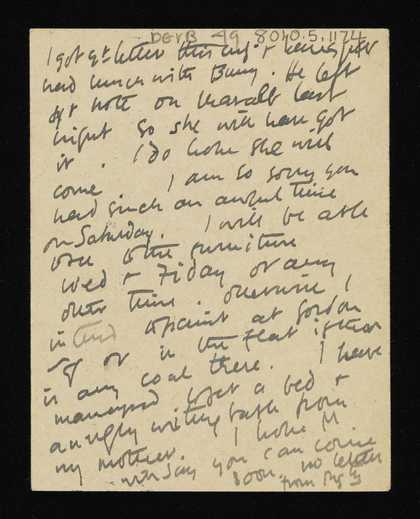 DEVB-49 8010.5.1174
I got yr letter this mg +
had lunch with Bunny. He left
yr note on last
night so she will have got
it. I do hope she will
come I am so sorry you
had such an awful time
on Saturday. I will be able
to the furniture
Wed + Friday or any
other time. Otherwise I
intend to paint at Gordon
Sq or in the flat if there
is any coal there. I have
managed to get a bed +
an ugly writing table from
my mother. I hope M
will say you can come
soon. no letter
from